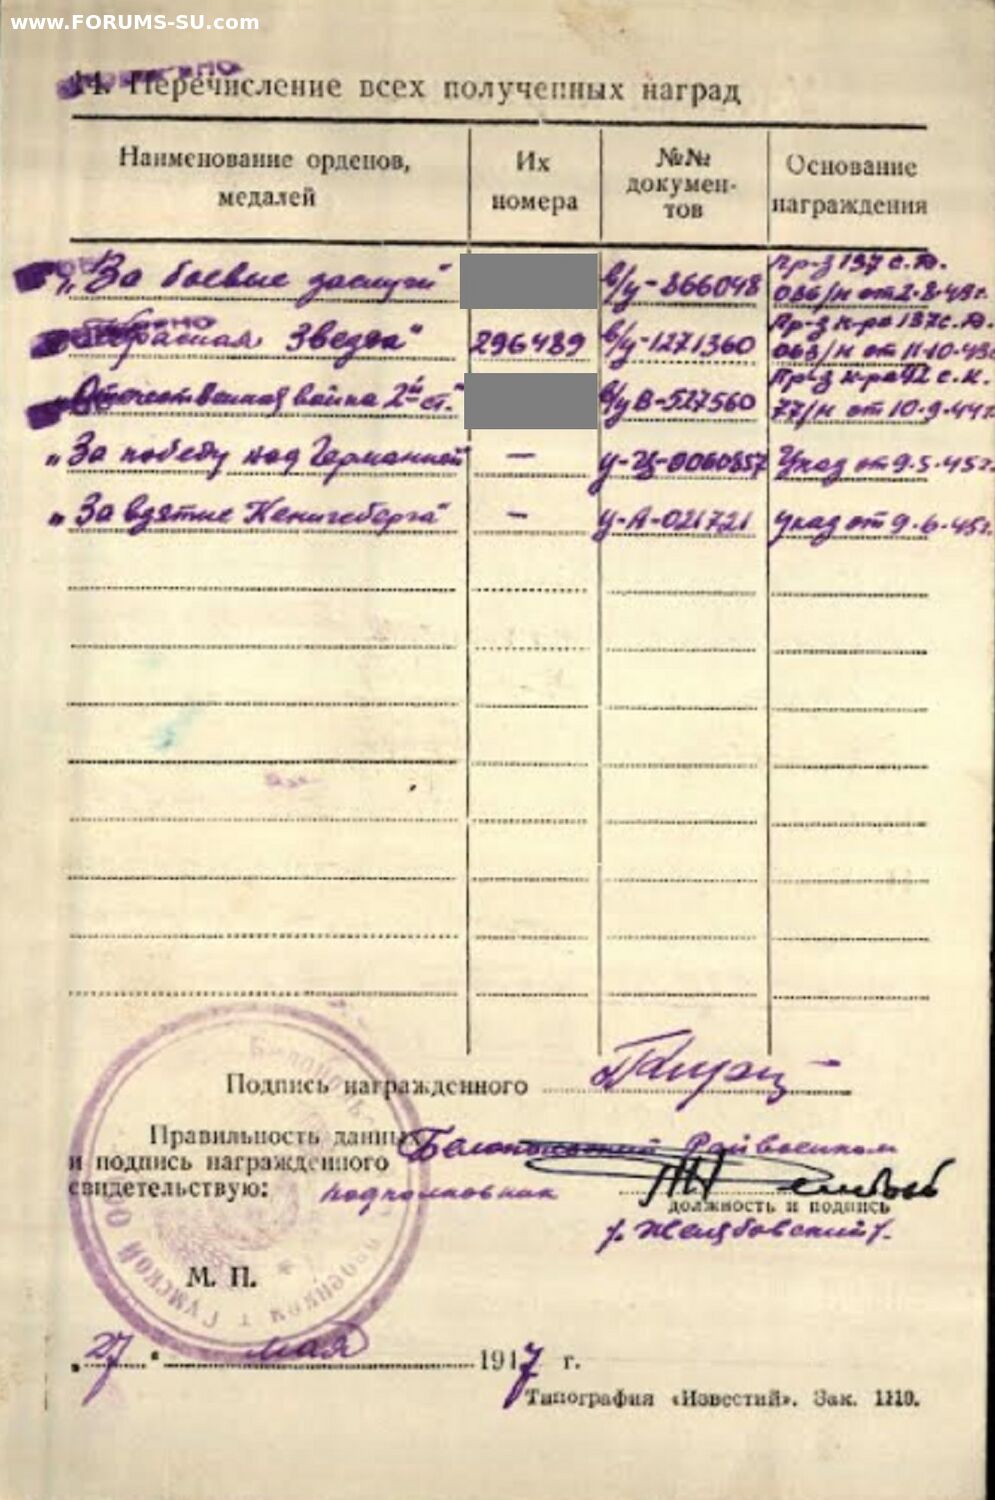 www.FORUMS-SU.com
14. Перечисление всех полученных наград
Наименование орденов, медалей
Их номера
№№ докумен-
тов
Основание награждения
„За боевые заслуги" в/у-866048 Пр-з 137 с.д. 066/н от 2-8-43г.
Красная Звезда" 296489 в/у-1271360 Пр-з к-ра 137 с.д. 063/н от 11-10-43г
Отечественная война 2й ст." в/у В-527560 Пр-з к-ра 42 с.к. 77/н от 10-9-44г.
„За победу над Германией" — у-Ц-0060857 Указ от 9-5-45г.
„За взятие Кенигсберга" — у-А-021721 указ от 9-6-45г.
Подпись награжденного
Правильность данных Райвоенком
и подпись награжденного
свидетельствую: подполковник
должность и подпись
М. П.
„27" мая 1947 г.
Типография «Известий». Зак. 1110.